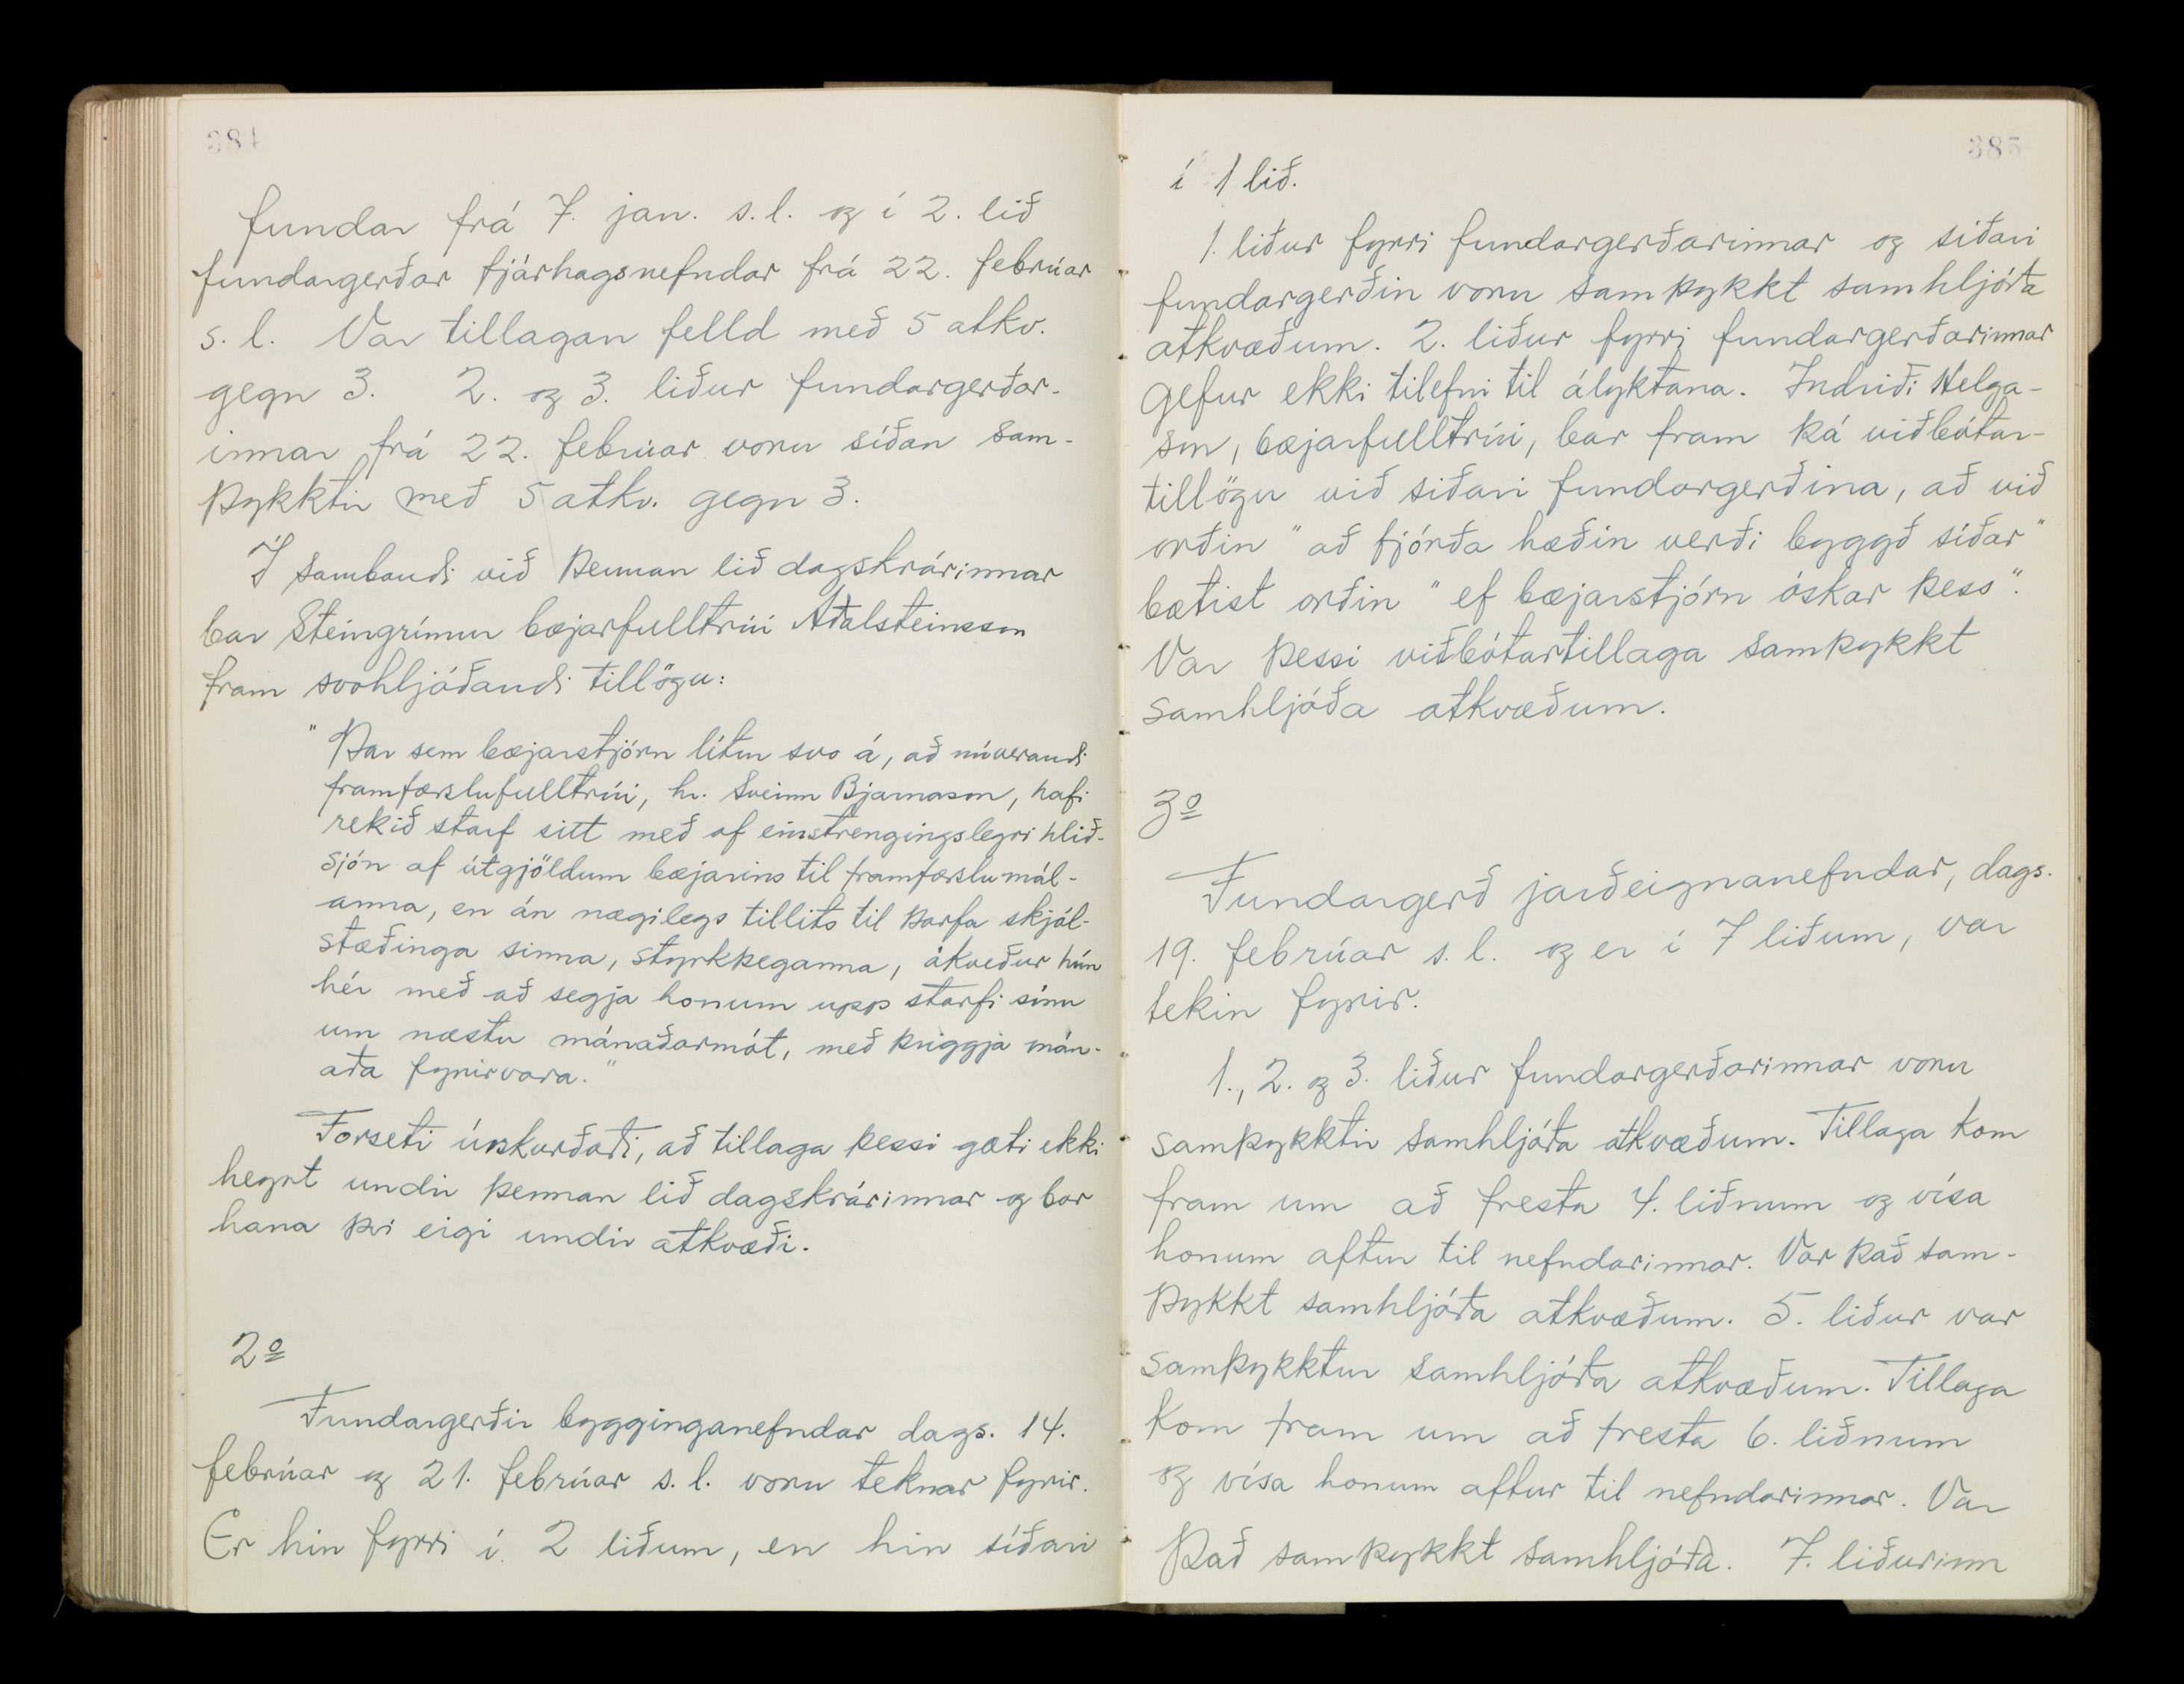 384
fundar frá 7. jan. s.l. og í 2. lið
fundargerðar fjárhagsnefndar frá 22. febrúar
s.l. Var tillagan felld með 5 atkv.
gegn 3. 2. og 3. liður fundargerðar-
innar frá 22. febrúar voru síðan sam-
þykktir með 5 atkv. gegn 3.
Í sambandi við þennan lið dagskrárinnar
bar Steingrímur bæjarfulltrúi Aðalsteinsson
fram svohljóðandi tillögu:
"Þar sem bæjarstjórn lítur svo á, að núverandi
framfærslufulltrúi, hr. Sveinn Bjarnason, hafi
rekið starf sitt með of einstrengingslegri hlið-
sjón af útgjöldum bæjarins til framfærslumál-
anna, en án nægilegs tillits til þarfa skjól-
stæðinga sinna, styrkþeganna, ákveður hún
hér með að segja honum upp starfi sínu
um næstu mánaðarmót, með þriggja mán-
aða fyrirvara."
Forseti úrskurðaði, að tillaga þessi gæti ekki
heyrt undir þennan lið dagskrárinnar og bar
hana því eigi undir atkvæði.
2º
Fundargerðir bygginganefndar dags. 14.
febrúar og 21. febrúar s.l. voru teknar fyrir.
Er hin fyrri í 2 liðum, en hin síðari
385
í 1 lið.
1. liður fyrri fundargerðarinnar og síðari
fundargerðin voru samþykkt samhljóða
atkvæðum. 2. liður fyrri fundargerðarinnar
gefur ekki tilefni til ályktana. Indriði Helga-
son, bæjarfulltrúi, bar fram þá viðbótar-
tillögu við síðari fundargerðina, að við
orðin "að fjórða hæðin verði byggð síðar"
bætist orðin "ef bæjarstjórn óskar þess".
Var þessi viðbótartillaga samþykkt
samhljóða atkvæðum.
3º
Fundargerð jarðeignanefndar, dags.
19. febrúar s.l. og er í 7 liðum, var
tekin fyrir.
1., 2. og 3. liður fundargerðarinnar voru
samþykktir samhljóða atkvæðum. Tillaga kom
fram um að fresta 4. liðnum og vísa
honum aftur til nefndarinnar. Var það sam-
þykkt samhljóða atkvæðum. 5. liður var
samþykktur samhljóða atkvæðum. Tillaga
kom fram um að fresta 6. liðnum
og vísa honum aftur til nefndarinnar. Var
það samþykkt samhljóða. 7. liðurinn